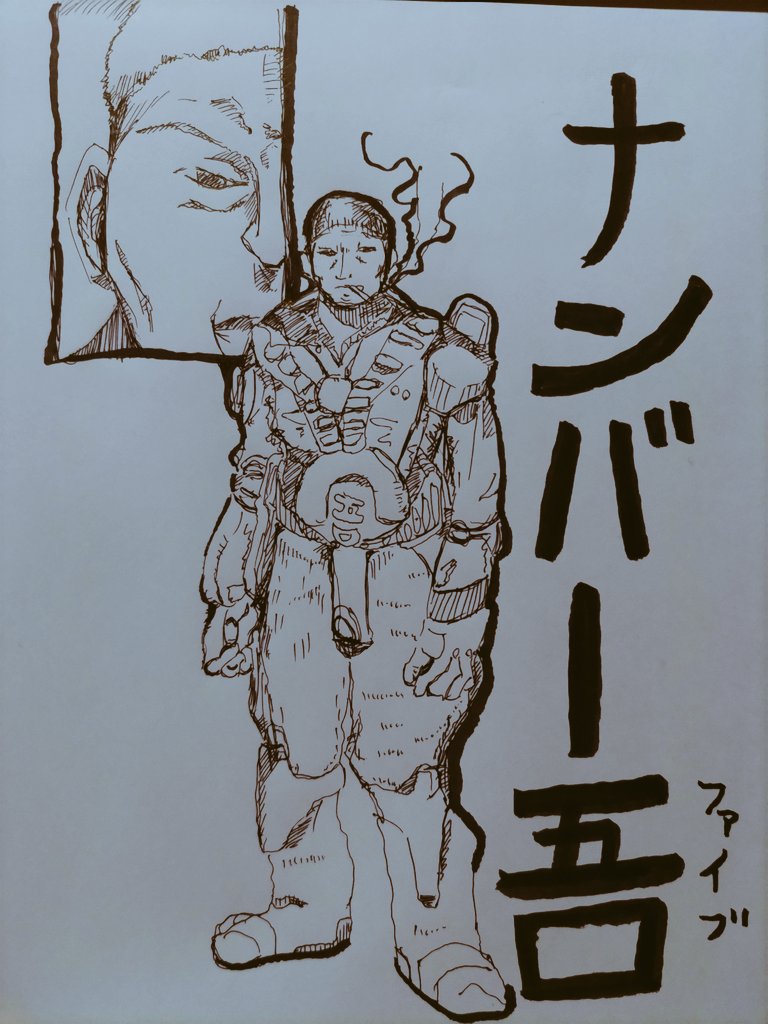 ナンバー吾
ファイブ
吾